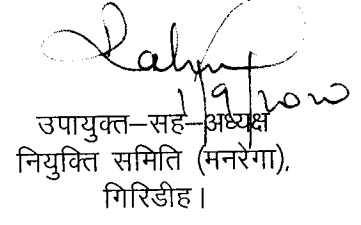 उपायुक्त–सह–अध्यक्ष
नियुक्ति समिति (मनरेगा),
गिरिडीह।